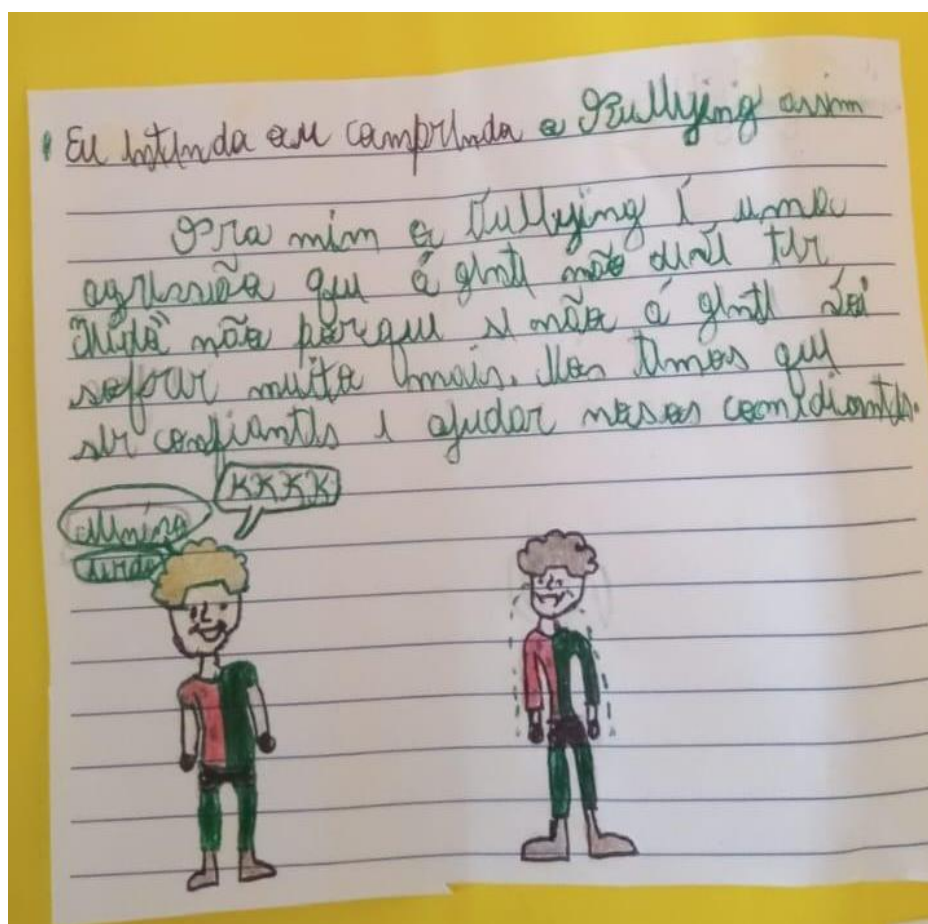 Eu entendo ou comprendo o Bullying assim
Pra mim o bullying é uma
agressão que á gente não deve ter
não porque si não á gente vai
sofrer muito mais. Nos temos que
ser confiantes e ajudar nosos comediantes.
KKKK
Menino
surdo